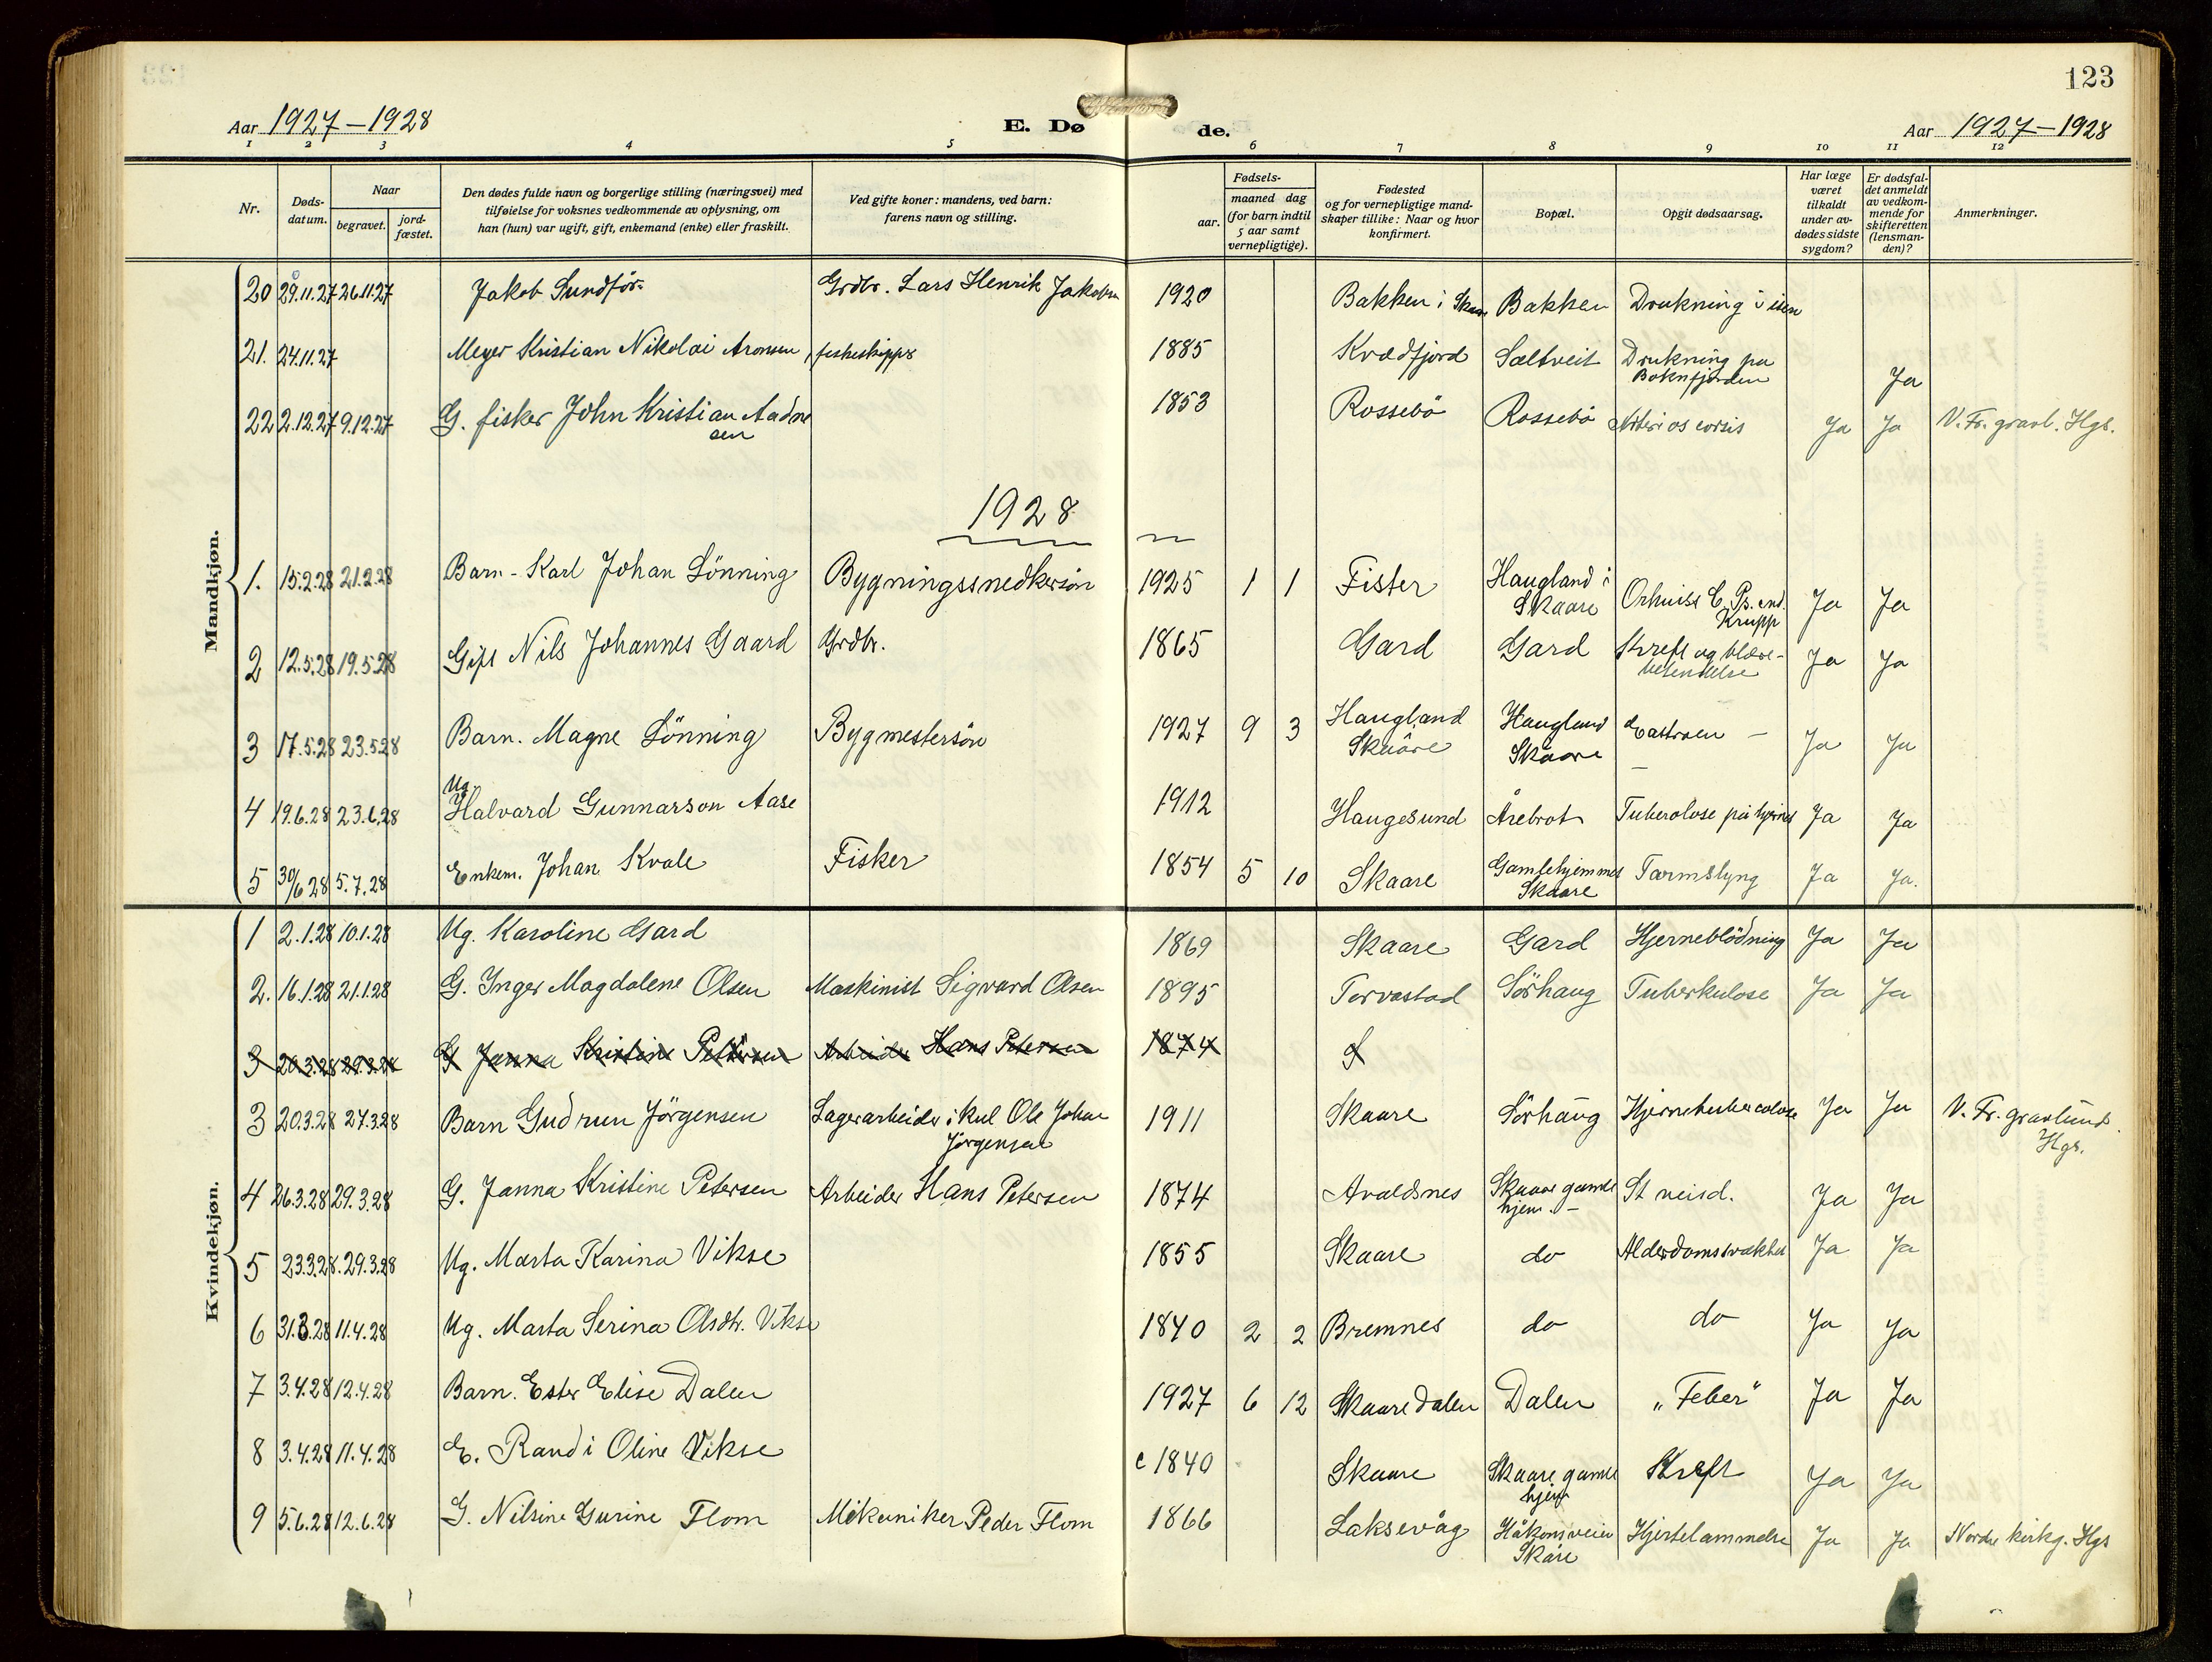 123
Aar 1927-1928
E. Dø
de.
Aar 1927-1928
1 2 3 4 5 6 7 8 9 10 11 12
Nr.
Døds-
datum.
Naar
begravet.
jord-
fæstet.
Den dødes fulde navn og borgerlige stilling (næringsvei) med
tilføielse for voksnes vedkommende av oplysning, om
han (hun) var ugift, gift, enkemand (enke) eller fraskilt.
Ved gifte koner: mandens, ved barn:
farens navn og stilling.
Fødsels-
aar.
maaned dag
(for barn indtil
5 aar samt
vernepligtige).
Fødested
og for vernepligtige mand-
skaper tillike: Naar og hvor
konfirmert.
Bopæl.
Opgit dødsaarsag.
Har læge
været
tilkaldt
under av-
dødes sidste
sygdom?
Er dødsfal-
det anmeldt
av vedkom-
mende for
skifteretten
(lensman-
den)?
Anmerkninger.
Mandkjøn.
20 26.11.27 Jakob Sundför Grdbr. Lars Henrik Jakobsen 1920 Bakken i Skaare Bakken Drukning i isen
21. 24.11.27 Meyer Kristian Nikolai Aronsen, fiskeskipper 1885 Kvædfjord Saltveit Drukning paa
Boknfjorden Ja
22 2.12.27 9.12.27 G. fisker John Kristian Aadne
sen 1853 Rossebö Rossebö Ja Ja V. Fr. gravl. Hgs.
1928
1. 15.2.28 21.2.28 Barn - Karl Johan Lönning Bygningssnedkersön 1925 1 1 Fister Haugland i
Skaare Krupp Ja Ja
2 12.5.28 19.5.28 Gift Nils Johannes Gaard Grdbr. 1865 Gard Gard Kreft og blære-
betendelse Ja Ja
3 17.5.28 23.5.28 Barn. Magne Lönning Bygmestersön 1927 9 3 Haugland
Skaare Haugland
Skaare Ja Ja
4 19.6.28 23.6.28 Ug.
Halvard Gunnarson Aase 1912 Haugesund Årebrot Tuberolose på hjernen Ja Ja
5 30/6 28 5.7.28 Enkem. Johan Kvale Fisker 1854 5 10 Skaare Gamlehjemmet
Skaare Tarmslyng Ja Ja.
Kvindekjøn.
1 2.1.28 10.1.28 Ug. Karoline Gard 1869 Skaare Gard Hjerneblödning Ja Ja
2. 16.1.28 21.1.28 G. Inger Magdalene Olsen Maskinist Sigvard Olsen 1895 Torvastad Sörhaug Tuberkulose Ja Ja
3 20.3.28 29.3.28 G Janna Kristine Petersen Arbeider Hans Petersen 1874
3 20.3.28 27.3.28 Barn Gudrun Jörgensen Lagerarbeider i kul Ole Johan
Jörgensen 1911 Skaare Sörhaug Hjernetubercolose Ja Ja V. Fr. gravlund.
Hgs.
4 26.3.28 29.3.28 G. Janna Kristine Petersen Arbeider Hans Petersen 1874 Avaldsnes Skaare gamle
hjem. - Ja Ja
5 23.3.28. 29.3.28 Ug. Marta Karina Vikse 1855 Skaare do Alderdomssvakhet Ja Ja
6 31.3.28 11.4.28 Ug. Marta Serina Olsdtr. Vikse 1840 2 2 Bremnes do do Ja Ja
7 3.4.28 12.4.28 Barn. Ester Elise Dalen 1927 6 12 Skaaredalen Dalen „Feber" Ja Ja
8 3.4.28 11.4.28 E. Randi Oline Vikse c 1840 Skaare Skaare gamle
hjem Kreft Ja Ja
9 5.6.28 12.6.28 G. Nilsine Gurine Flom Mekaniker Peder Flom 1866 Laksevåg Håkonsveien
Skåre Hjertelammelse Ja Ja Nordre kirkg. Hgs